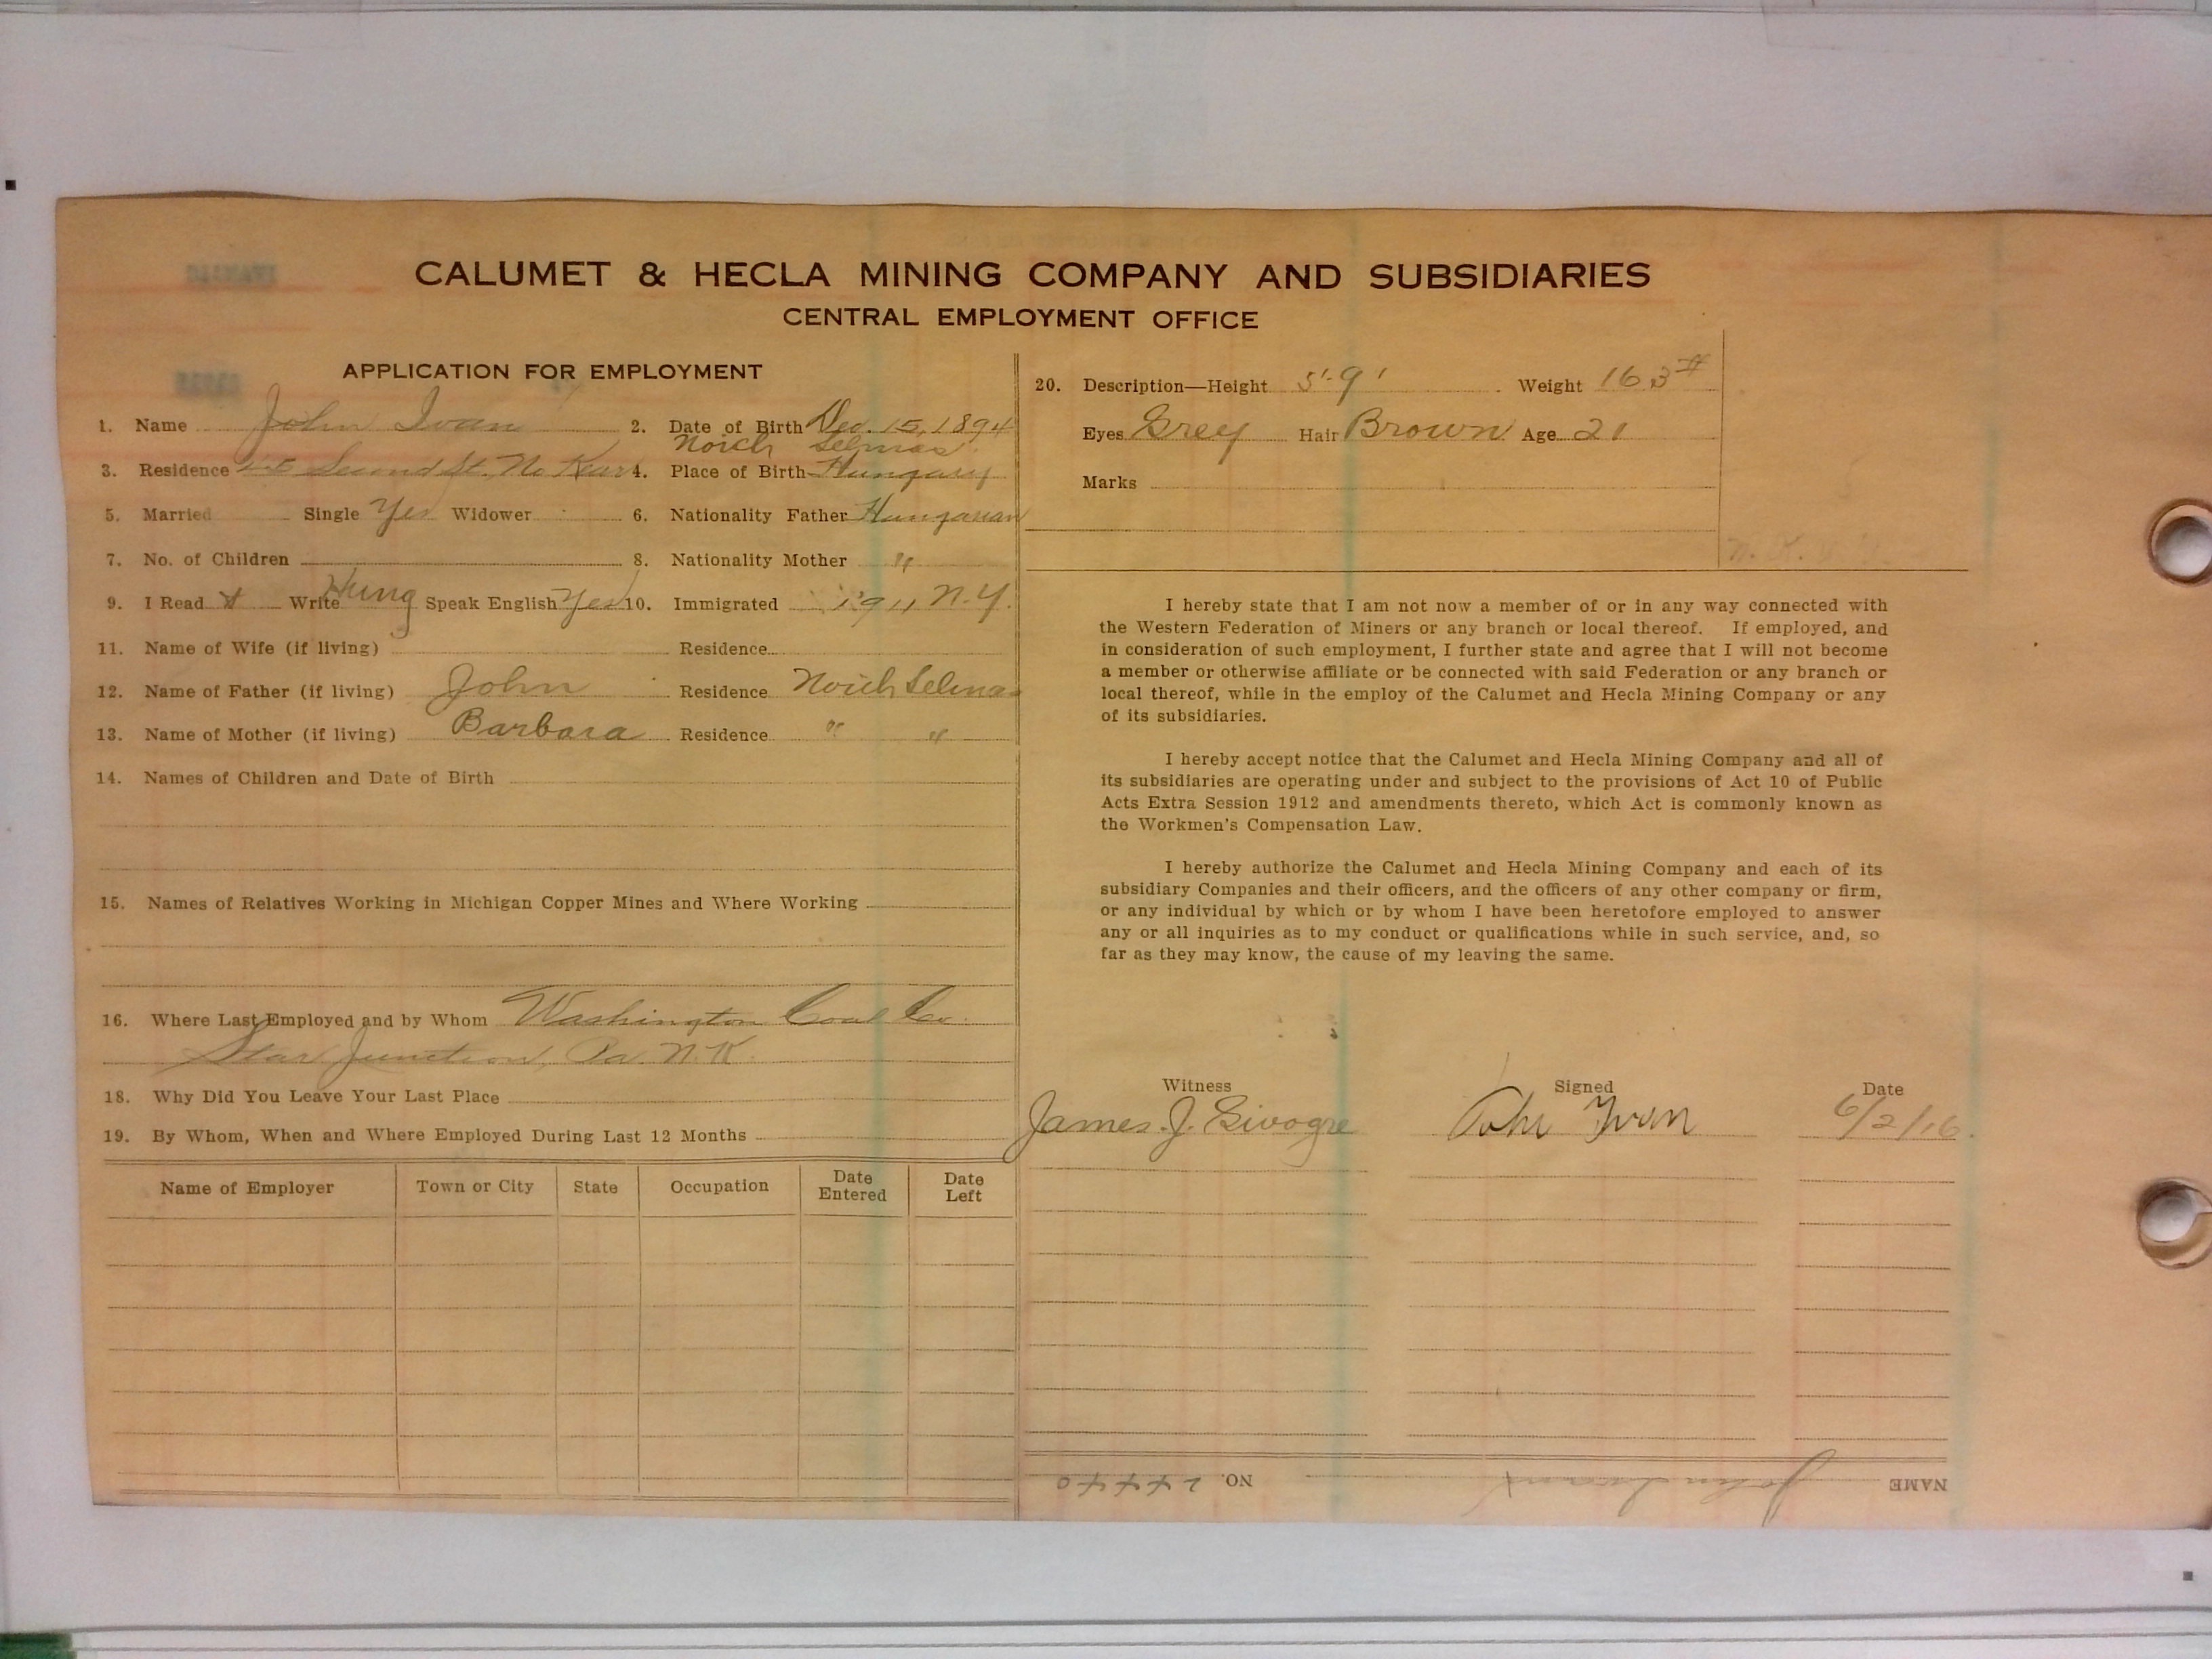 CALUMET & HECLA MINING COMPANY AND SUBSIDIARIES
CENTRAL EMPLOYMENT OFFICE
APPLICATION FOR EMPLOYMENT
1. Name John Ivan 2. Date of Birth Dec. 15, 1894
Noich Selmas
3. Residence Second St. No Kear 4. Place of Birth Hungary
5. Married Single Yes Widower 6. Nationality Father Hungarian
7. No. of Children 8. Nationality Mother "
9. I Read & Write Hung Speak English Yes 10. Immigrated 1911 N.Y.
11. Name of Wife (if living) Residence
12. Name of Father (if living) John Residence Noich Selmas
13. Name of Mother (if living) Barbara Residence " "
14. Names of Children and Date of Birth
15. Names of Relatives Working in Michigan Copper Mines and Where Working
16. Where Last Employed and by Whom Washington Coal Co.
Star Junction, Pa. N.K.
18. Why Did You Leave Your Last Place
19. By Whom, When and Where Employed During Last 12 Months
Name of Employer Town or City State Occupation Date Entered Date Left
20. Description—Height 5'-9' Weight 163#
Eyes Grey Hair Brown Age 21
Marks
I hereby state that I am not now a member of or in any way connected with
the Western Federation of Miners or any branch or local thereof. If employed, and
in consideration of such employment, I further state and agree that I will not become
a member or otherwise affiliate or be connected with said Federation or any branch or
local thereof, while in the employ of the Calumet and Hecla Mining Company or any
of its subsidiaries.
I hereby accept notice that the Calumet and Hecla Mining Company and all of
its subsidiaries are operating under and subject to the provisions of Act 10 of Public
Acts Extra Session 1912 and amendments thereto, which Act is commonly known as
the Workmen's Compensation Law.
I hereby authorize the Calumet and Hecla Mining Company and each of its
subsidiary Companies and their officers, and the officers of any other company or firm,
or any individual by which or by whom I have been heretofore employed to answer
any or all inquiries as to my conduct or qualifications while in such service, and, so
far as they may know, the cause of my leaving the same.
Witness Signed Date
James. J. Givogre Ivan 6/2/16.
NAME John NO. 24440